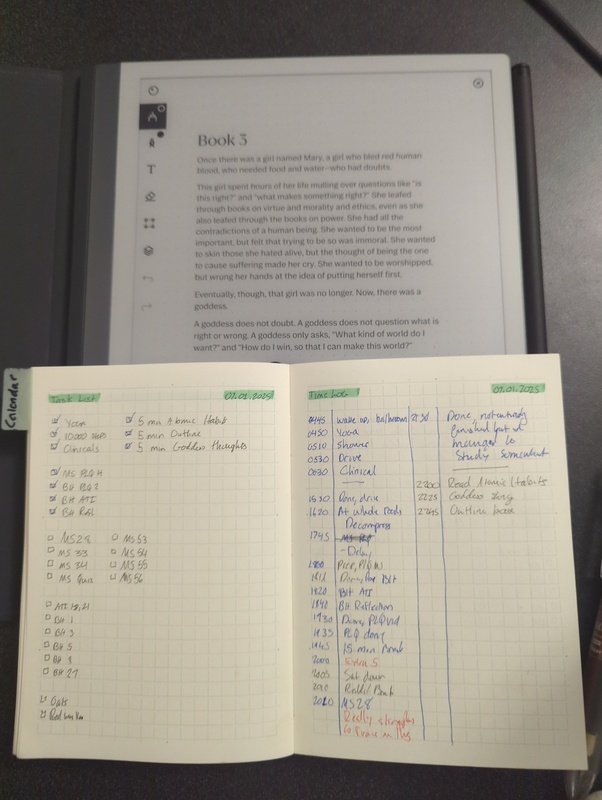 Book 3
Once there was a girl named Mary, a girl who bled red human
blood, who needed food and water—who had doubts.
This girl spent hours of her life mulling over questions like "is
this right?" and "what makes something right?" She leafed
through books on virtue and morality and ethics, even as she
also leafed through the books on power. She had all the
contradictions of a human being. She wanted to be the most
important, but felt that trying to be so was immoral. She wanted
to skin those she hated alive, but the thought of being the one
to cause suffering made her cry. She wanted to be worshipped,
but wrung her hands at the idea of putting herself first.
Eventually, though, that girl was no longer. Now, there was a
goddess.
A goddess does not doubt. A goddess does not question what is
right or wrong. A goddess only asks, "What kind of world do I
want?" and "How do I win, so that I can make this world?"
T
Calendar
Task List
Yoga
10,000 steps
Clinicals
5 min Atomic Habit
5 min Outline
5 min Goddess thoughts
MS PLQ H
BH PLQ 2
BH ATI
BH Refl
MS 28
MS 33
MS 34
MS Quiz
MS 53
MS 54
MS 55
MS 56
BH 1
BH 3
BH 5
BH 27
Oats
Time Log
0445 wake up, bathroom
0450 Yoga
0510 Shower
0530 Drive
0630 Clinical
1530 Done, drive
1620 At Whole Foods
Decompress
1745
-Delay
1800
BH ATI
BH Reflection
1930
1935 PLQ done
1945 15 min break
2000
2005 Sat down
2010
MS 28
Really
2130 Done, not entirely
finished but I
managed to
study somewhat
2200 Read Atomic Habits
2225
2245 Outline